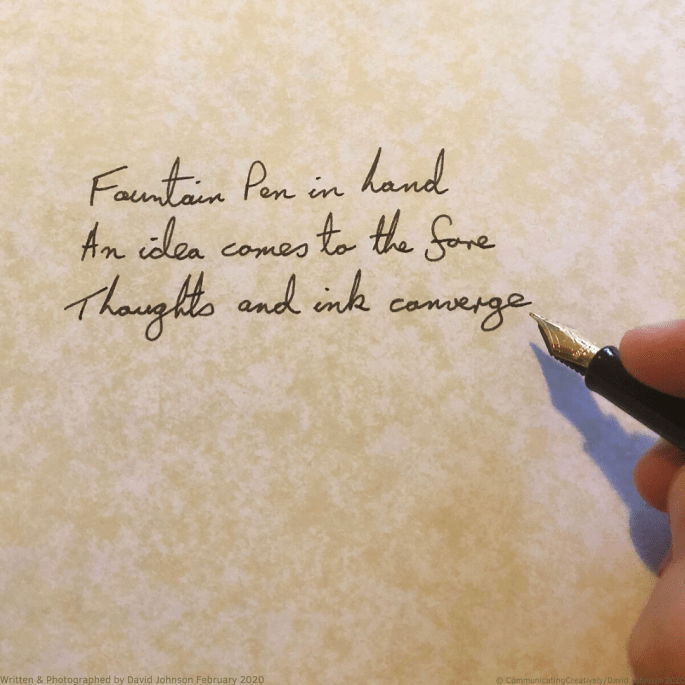 Fountain Pen in hand
An idea comes to the fore
Thoughts and ink converge
Written & Photographed by David Johnson February 2020
© CommunicatingCreatively/David